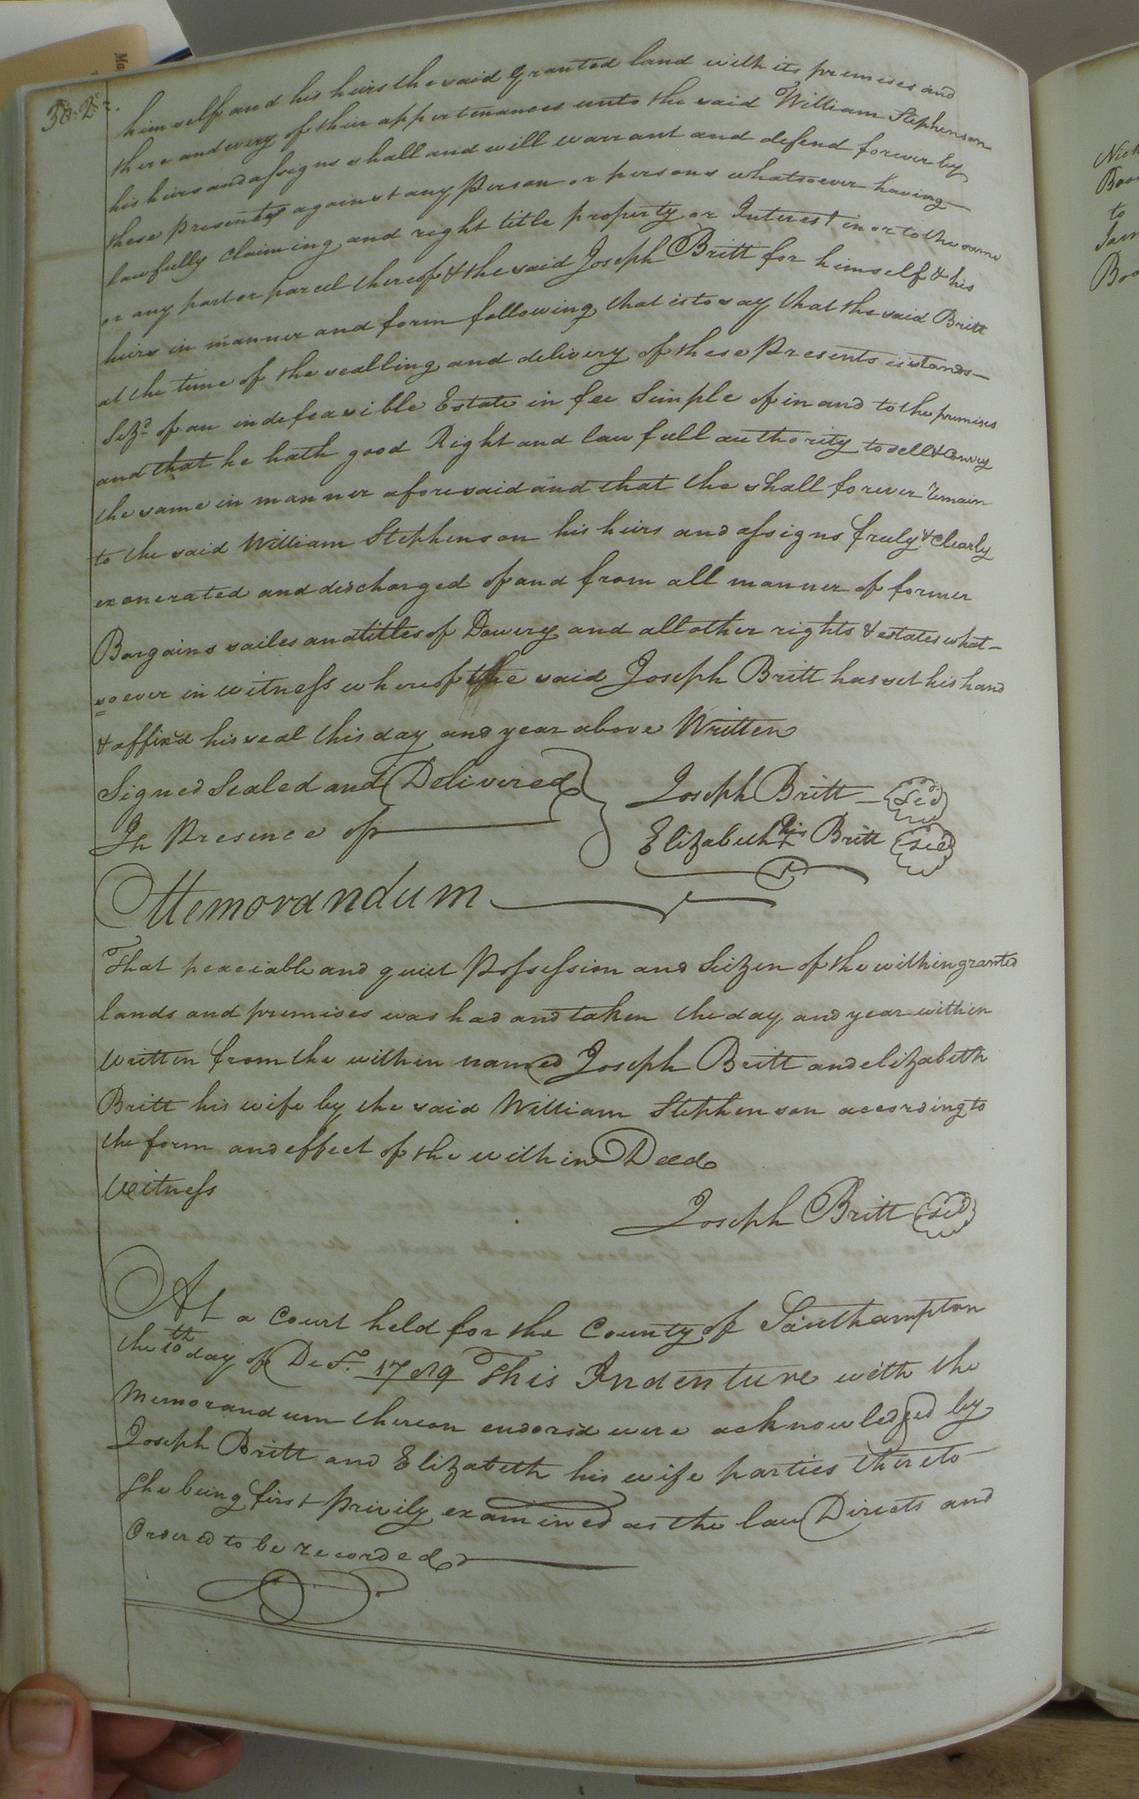 382.
himself and his heirs the said granted land with its premises and
there and every of their appertenances unto the said William Stephenson
his heirs and assigns shall and will warrant and defend forever by
these Presents against any Person or persons whatsoever having
lawfully claiming and right title property or Interest in or to the same
or any part or parcel thereof & the said Joseph Britt for himself & his
heirs in manner and form following that is to say that the said Britt
at the time of the sealling and delivery of these Presents is stands
Sizd of an indefeasible Estate in fee Simple of in and to the premises
and that he hath good Right and lawfull authority to sell & Convey
the same in manner aforesaid and that the shall forever remain
to the said William Stephenson his heirs and assigns truly & Clearly
exonerated and discharged of and from all manner of former
Bargains sailes and titles of Dowery and all other rights & estates what-
soever in witness whereof the said Joseph Britt has set his hand
& affix'd his seal this day and year above Written
Signed Sealed and Delivered
In Presence of
Joseph Britt Sed
Elizabeth his X Britt Sed
Memorandum
That peaciable and quiet Possession and Seizen of the within granted
lands and premises was had and taken the day and year within
Written from the within named Joseph Britt and elizabeth
Britt his wife by the said William Stephenson according to
the form and effect of the within Deed
Witness
Joseph Britt Sed
At a Court held for the County of Southampton
the 10th day of Decr. 1789 This Indenture with the
Memorandum thereon endorsd were acknowledged by
Joseph Britt and Elizabeth his wife parties thereto
She being first Privily examined as the law Directs and
Ordered to be recorded
to